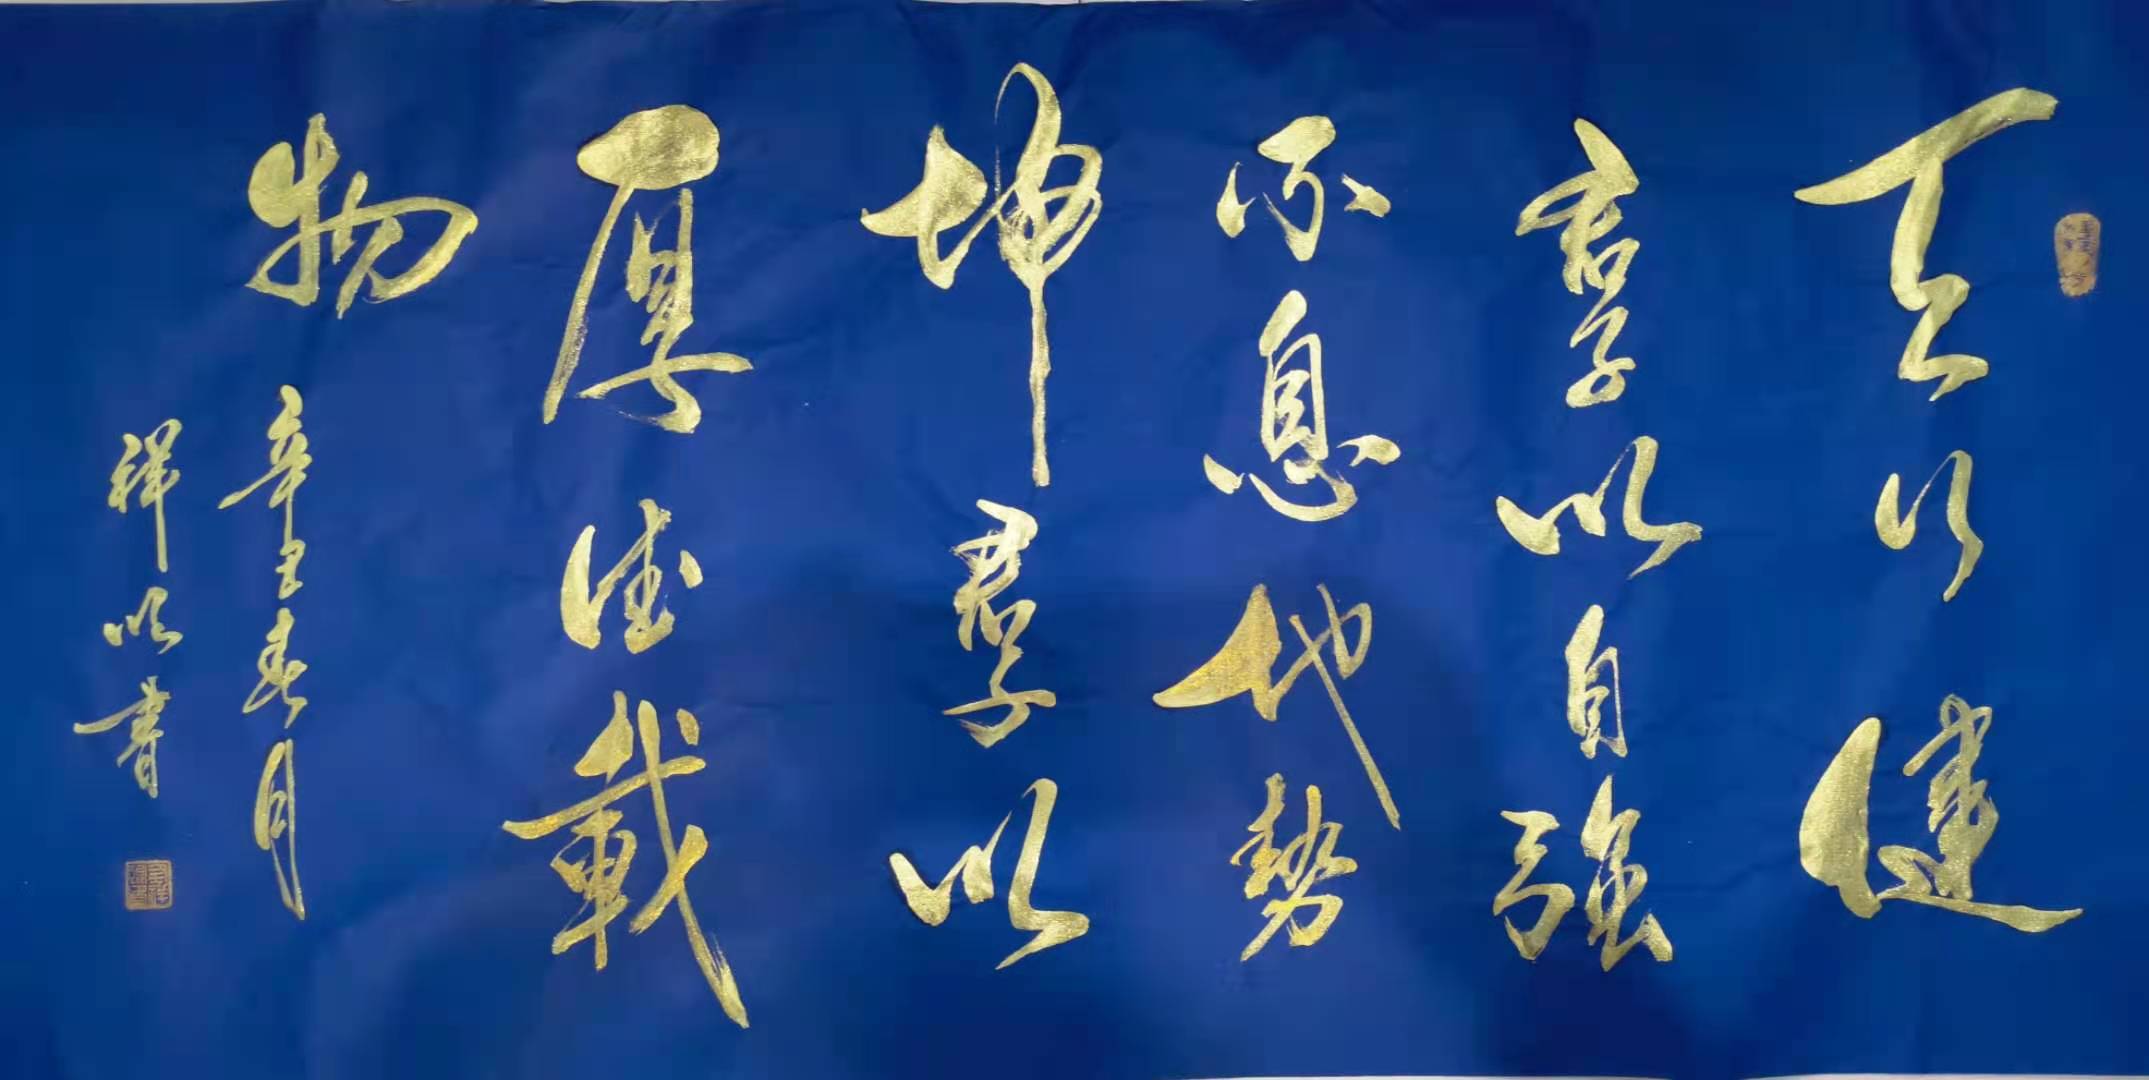 天行健
君子以自强
不息地势
坤君子以
厚德載
物
辛丑春月
祥以書